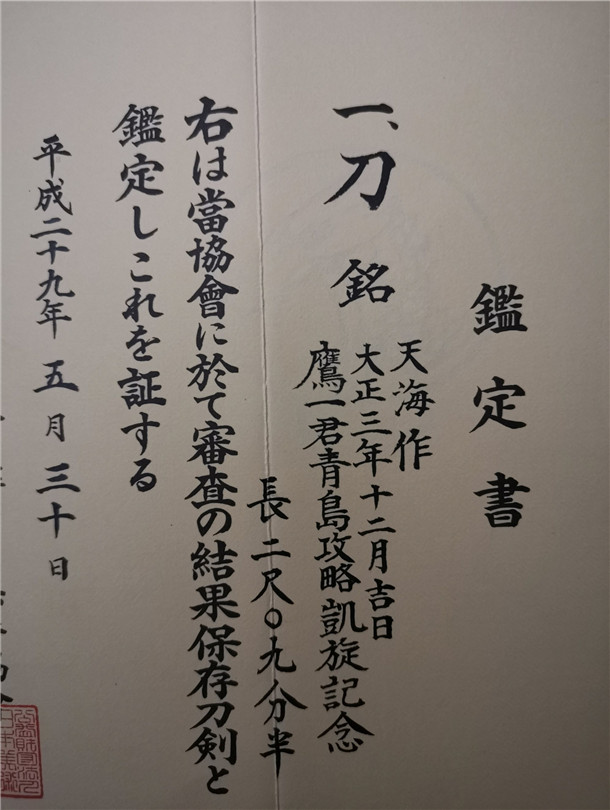 鑑定書
一、刀 銘
天海作
大正三年十二月吉日
鷹一君青島攻略凱旋記念
長二尺〇九分半
右は當協會に於て審査の結果保存刀剣と
鑑定しこれを証する
平成二十九年 五月 三十日